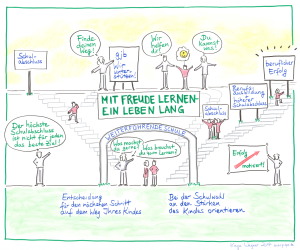 Finde
deinen
Weg!
Wir
helfen
dir!
Du
kannst
was!
Schul-
abschluss
wir
unter-
stützen!
beruflicher
Erfolg
MIT FREUDE LERNEN-
EIN LEBEN LANG
Berufs-
ausbildung
höherer
Schulabschluss
Schul-
abschluss
Der höchste
Schulabschluss
ist nicht für jeden
das beste Ziel!
WEITERFÜHRENDE SCHULE
Was machst
du gerne?
Was brauchst
du zum Lernen?
Erfolg
motiviert!
Entscheidung
für den nächsten Schritt
auf dem Weg Ihres Kindes
Bei der Schulwahl
an den Stärken
des Kindes orientieren